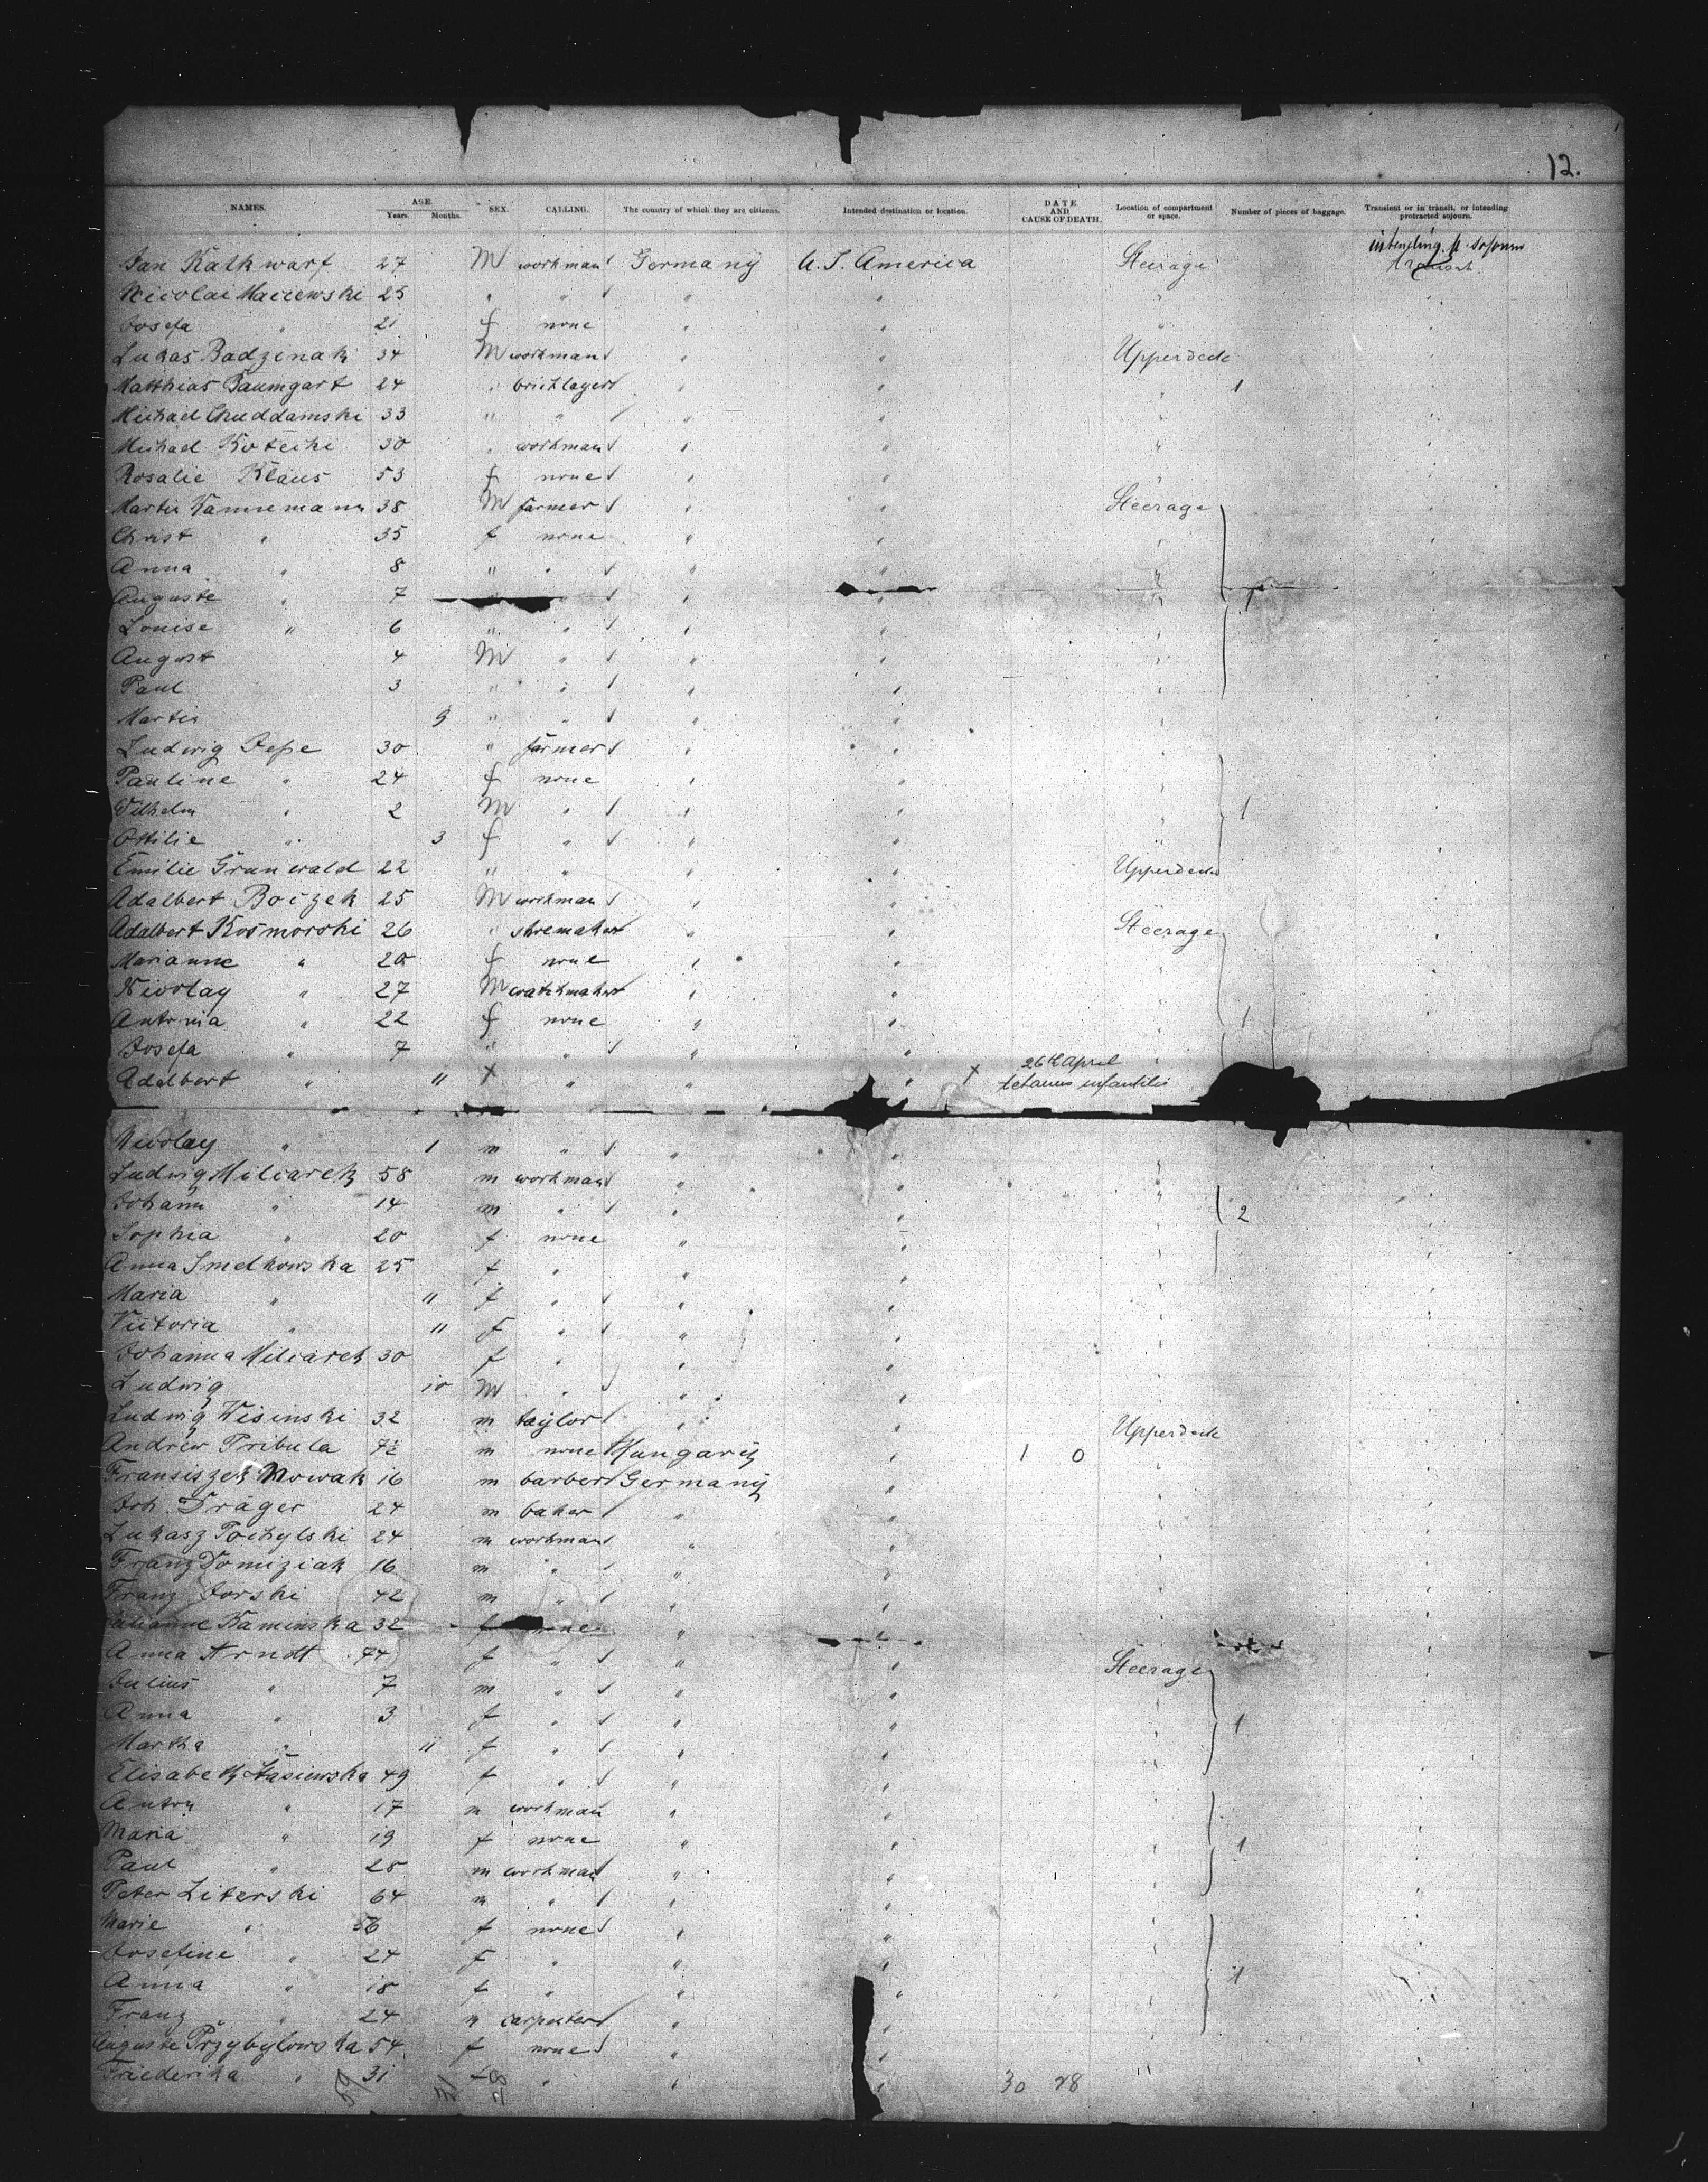 12.
NAMES. AGE. Years. Months. SEX. CALLING. The country of which they are citizens. Intended destination or location. DATE AND CAUSE OF DEATH. Location of compartment or space. Number of pieces of baggage. Transient or in transit, or intending protracted sojourn.
intending p. sojourn
Jan Kalkwarf 27 M workman Germany U.S. America Steerage
Nicolai Maciewski 25 " " " "
Josefa " 21 f none " "
Lukas Badzinak 34 M workman " " Upperdeck
Matthias Baumgart 24 " bricklayer " " " 1
Michael Chuddamski 33 " " " " "
Michael Kotecki 30 " workman " " "
Rosalie Klaus 53 f none " "
Martin Wannemann 38 M farmer " " Steerage
Christ " 35 f none " " "
Anna " 8 " " " " "
Auguste " 7 " " " " 1
Louise " 6 " " " " "
August 4 M " " " "
Paul 3 " " " " "
Martin 9 " " " " "
Ludwig Jepe 30 " farmer " " "
Pauline " 24 f none " " "
Wilhelm " 2 M " " " " 1
Ottilie " 3 f " " " "
Emilie Grunwald 22 " " " " Upperdeck
Adalbert Boczek 25 M workman " "
Adalbert Kosmorski 26 " shoemaker " " Steerage
Marianne " 20 f none " " "
Nicolay " 27 M watchmaker " " "
Antonia " 22 f none " " " 1
Josefa " 7 " " " " "
Adalbert " 11 x " " " x 26th April tetanus infantilis
Nicolay " 1 m " " "
Ludwig Miliarek 58 m workman " " "
Johann " 14 m " " " " 2
Sophia " 20 f none " " "
Anna Smelkowska 25 f " " " "
Maria " 11 f " " " "
Victoria " 11 f " " " "
Johanna Miliarek 30 f " " " "
Ludwig 10 M " " "
Ludwig Wisinski 32 m taylor " " Upperdeck
Andrew Pribula 7½ m none Hungary " 1 0
Fransiszek Nowak 16 m barber Germany " "
Joh. Dräger 24 m baker " " "
Lukasz Pochylski 24 m workman " " "
Franz Domiziak 16 m " " " "
Franz Jorski 42 m " " " "
Kaminska 32 f none " " "
Anna Arndt 74 f " " " Steerage
Julius " 7 m " " " "
Anna " 3 f " " " " 1
Martha " 11 f " " " "
Elisabeth Stasiewska 49 f " " " "
Anton " 17 m workman " " "
Maria " 19 f none " " " 1
Paul " 28 m workman " " "
Peter Literski 64 m " " " "
Marie " 56 f none " " "
Josefine " 24 f " " " "
Anna " 18 f " " " " 1
Franz " 24 m carpenter " " "
Auguste Przybylowska 54 f none " " "
Friederika " 31 f " " " "
30 28